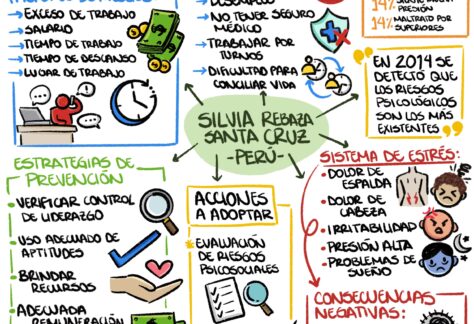 → EXCESO DE TRABAJO
→ SALARIO
→ TIEMPO DE TRABAJO
→ TIEMPO DE DESCANSO
→ LUGAR DE TRABAJO
DESEMPLEO
→ NO TENER SEGURO
MÉDICO
→ TRABAJAR POR
TURNOS
→ DIFICULTAD PARA
CONCILIAR VIDA
PRESIÓN
14% MALTRATO POR
SUPERIORES
"EN 2014 SE
DETECTÓ QUE
LOS RIESGOS
PSICOLÓGICOS
SON LOS MÁS
EXISTENTES"
SILVIA REBAZA
SANTA CRUZ
-PERÚ-
ESTRATEGIAS DE
PREVENCIÓN
• VERIFICAR CONTROL
DE LIDERAZGO
• USO ADECUADO DE
APTITUDES
• BRINDAR
RECURSOS
• ADECUADA
REMUNERACIÓN
ACCIONES
A ADOPTAR
* EVALUACIÓN
DE RIESGOS
PSICOSOCIALES
SISTEMA DE ESTRÉS:
• DOLOR DE
ESPALDA
• DOLOR DE
CABEZA
• IRRITABILIDAD
• PRESIÓN ALTA
• PROBLEMAS DE
SUEÑO
CONSECUENCIAS
NEGATIVAS: